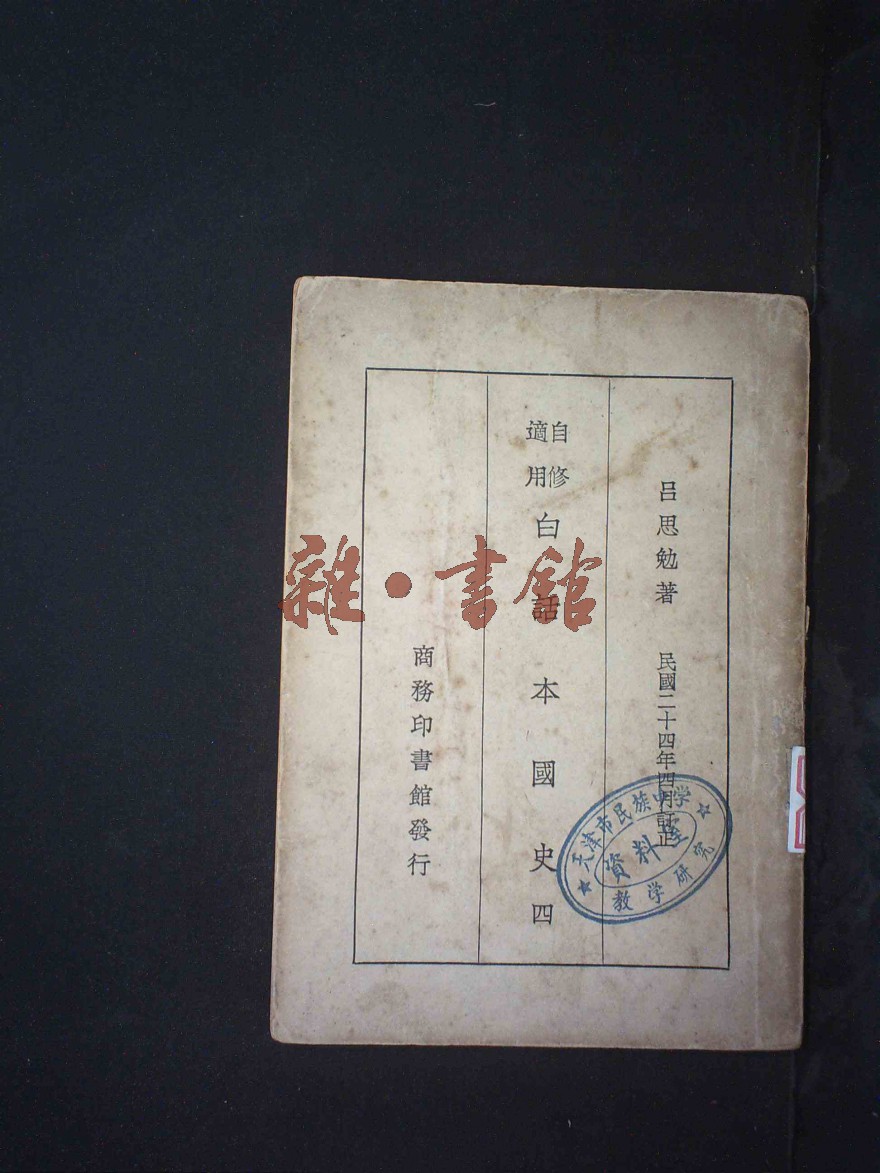 呂思勉著 民國二十四年四月訂正
自修
適用
白話本國史 四
商務印書館發行
雜·書館
天津市民族中学
資料室
教学研究